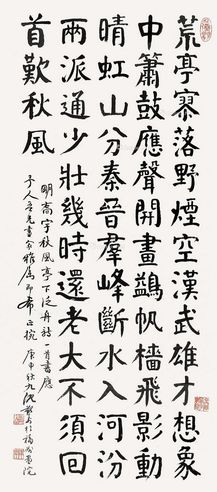 荒亭寥落野煙空漢武雄才想象
中簫鼓應聲開畫鷁帆檣飛影動
晴虹山分秦晉羣峰斷水入河汾
兩派通少壯幾時還老大不須回
首歎秋風
明高宇秋風亭下泛舟詩一首書應
人吾兄書家雅屬即希正腕 庚申秋九沈覲壽於福州畫院